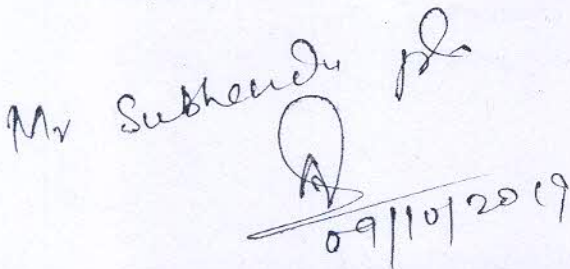 Mr Subhendu pl.
09/10/2019